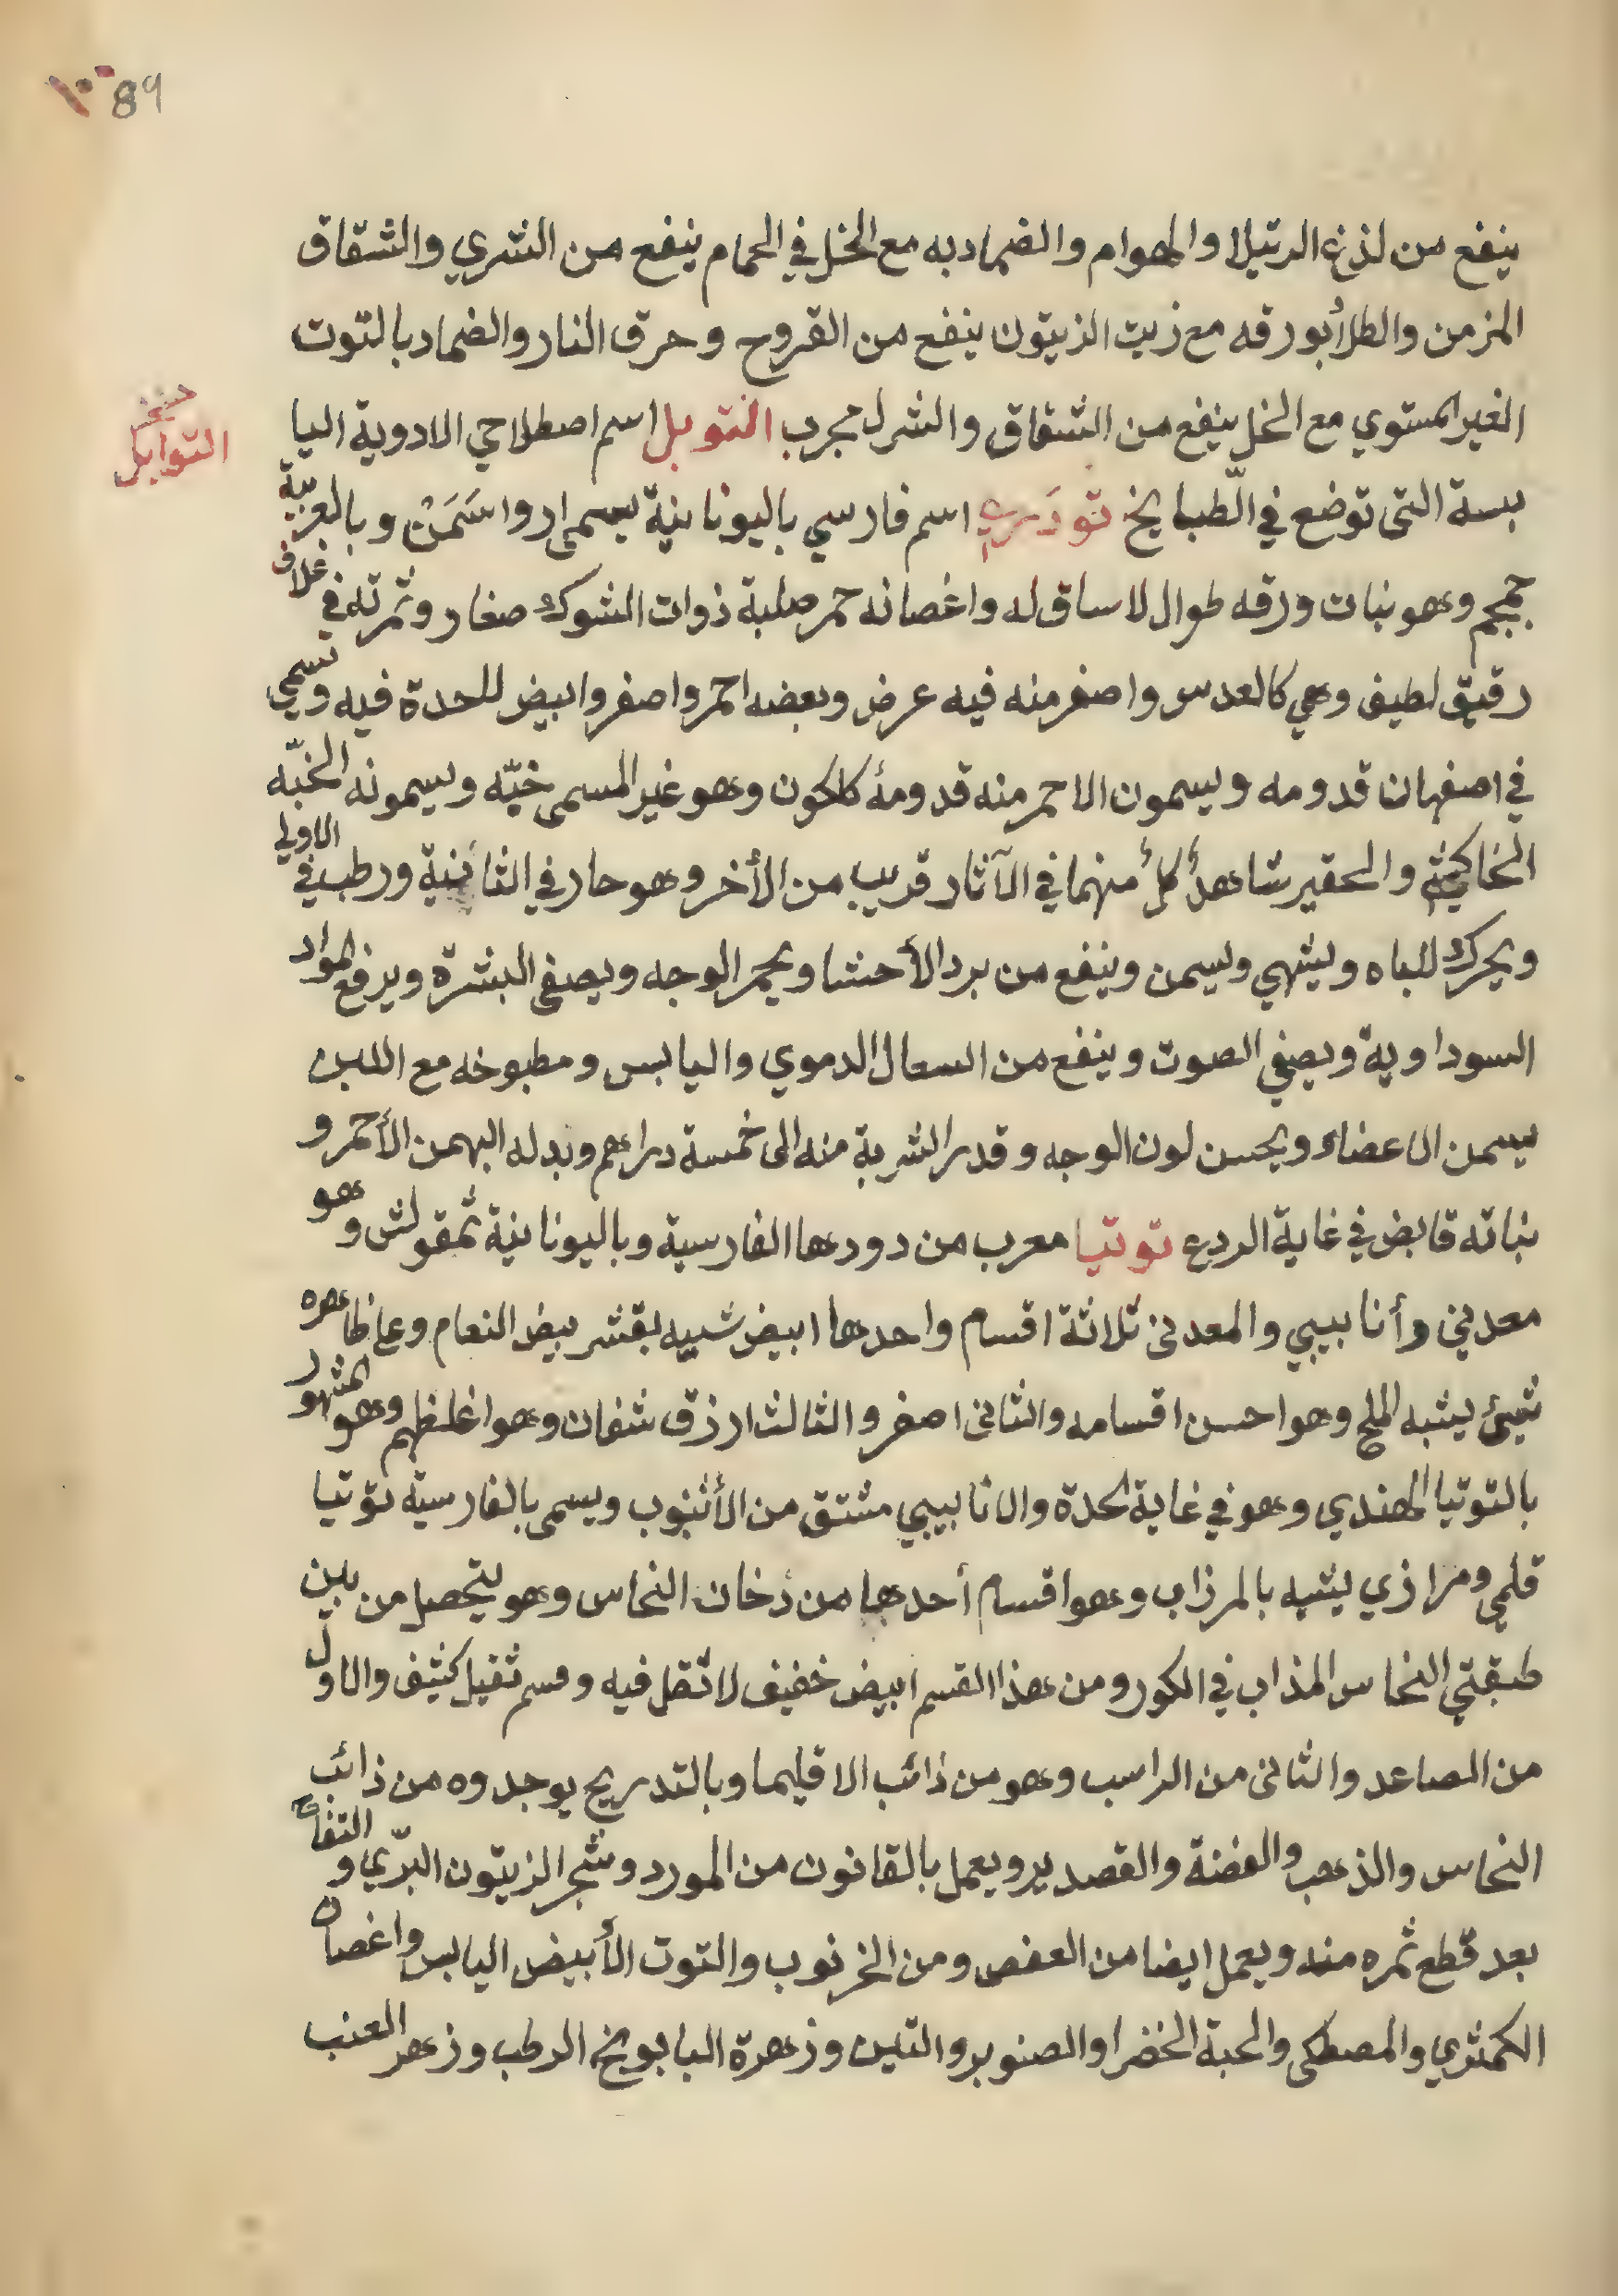 ١٠٠ 89
ينفع من لذغ الرتيلا والهوام والضمادبه مع الخل في الحمام ينفع من الشري والشقاق
المزمن والطلأبورقه مع زيت الزيتون ينفع من القروح وحرق النار والضماد بالتوت
الغير المستوي مع الخل ينفع من الشقاق والشرك مجرب التوبل اسم اصطلاحي الادوية اليا
نسخه
التوابل
بسة التى توضع في الطبايخ تودَري اسم فارسي باليونانية يسمى اروا سَمَنْ وبالعربية
جمجم وهو نبات ورقه طوال لا ساق له واغصانه حمر صلبة ذوات الشوك صغار وثمرته في غلاف
رقيق لطيف وهي كالعدس واصغر منه فيه عرض وبعضه احمر واصفر وابيض للحدة فيه وتسمي
في اصفهان قدومه ويسمون الاحمر منه قدومۀ كلكون وهو غير المسمى خبّه ويسمونه الخبّه
الخاكشي والحقير شاهدُ كلُ منهما في الآثار قريب من الأخر وهو حار في الثانية ورطب في الاولي
ويحرك للباه ويشهي ويسمن وينفع من برد الأحشا ويحمر الوجه ويصفى البشرة ويرفع المواد
السوداوية ويصفي الصوت وينفع من السعال الدموي واليابس ومطبوخه مع اللبن
يسمن الاعضاء ويحسن لون الوجه وقدر الشربة منه الى خمسة دراهم وبدله البهمن الأحمر و
نباته قابض في غاية الردع توتيا معرب من دودها الفارسية وباليونانية ثمقولش وهو
معدني وأنابيبي والمعدنى ثلاثة اقسام واحدها ابيض شبيه بقشر بيض النعام وعلى ظاهره
شيئ يشبه الملح وهو احسن اقسامه والثانى اصفر والثالث ازرق شفان وهو اغلظهم وهو المشهور
بالتوتيا الهندي وهو في غاية الحدة والانابيبي مشتق من الأنبوب ويسمى بالفارسية توتيا
قلمي ومرازي يشبه بالمرزاب وهو اقسام أحدها من دخان النحاس وهو يتحصل من بين
طبقتي النحاس المذاب في الكور ومن هذا القسم ابيض خفيف لا ثقل فيه وقسم ثقيل كثيف والاول
من الصاعد والثانى من الراسب وهو من ذائب الاقليما وبالتدريج يوجدوه من ذائب
النحاس والذهب والفضة والقصدير ويعمل بالقانون من المورد وشجر الزيتون البرّي والتفاح
بعد قطع ثمره منه ويعمل ايضا من العفص ومن الخرنوب والتوت الأبيض اليابس واغصان
الكمثري والمصطكى والحبة الخضرا والصنوبر والتين وزهرة البابونج الرطب وزهر العنب